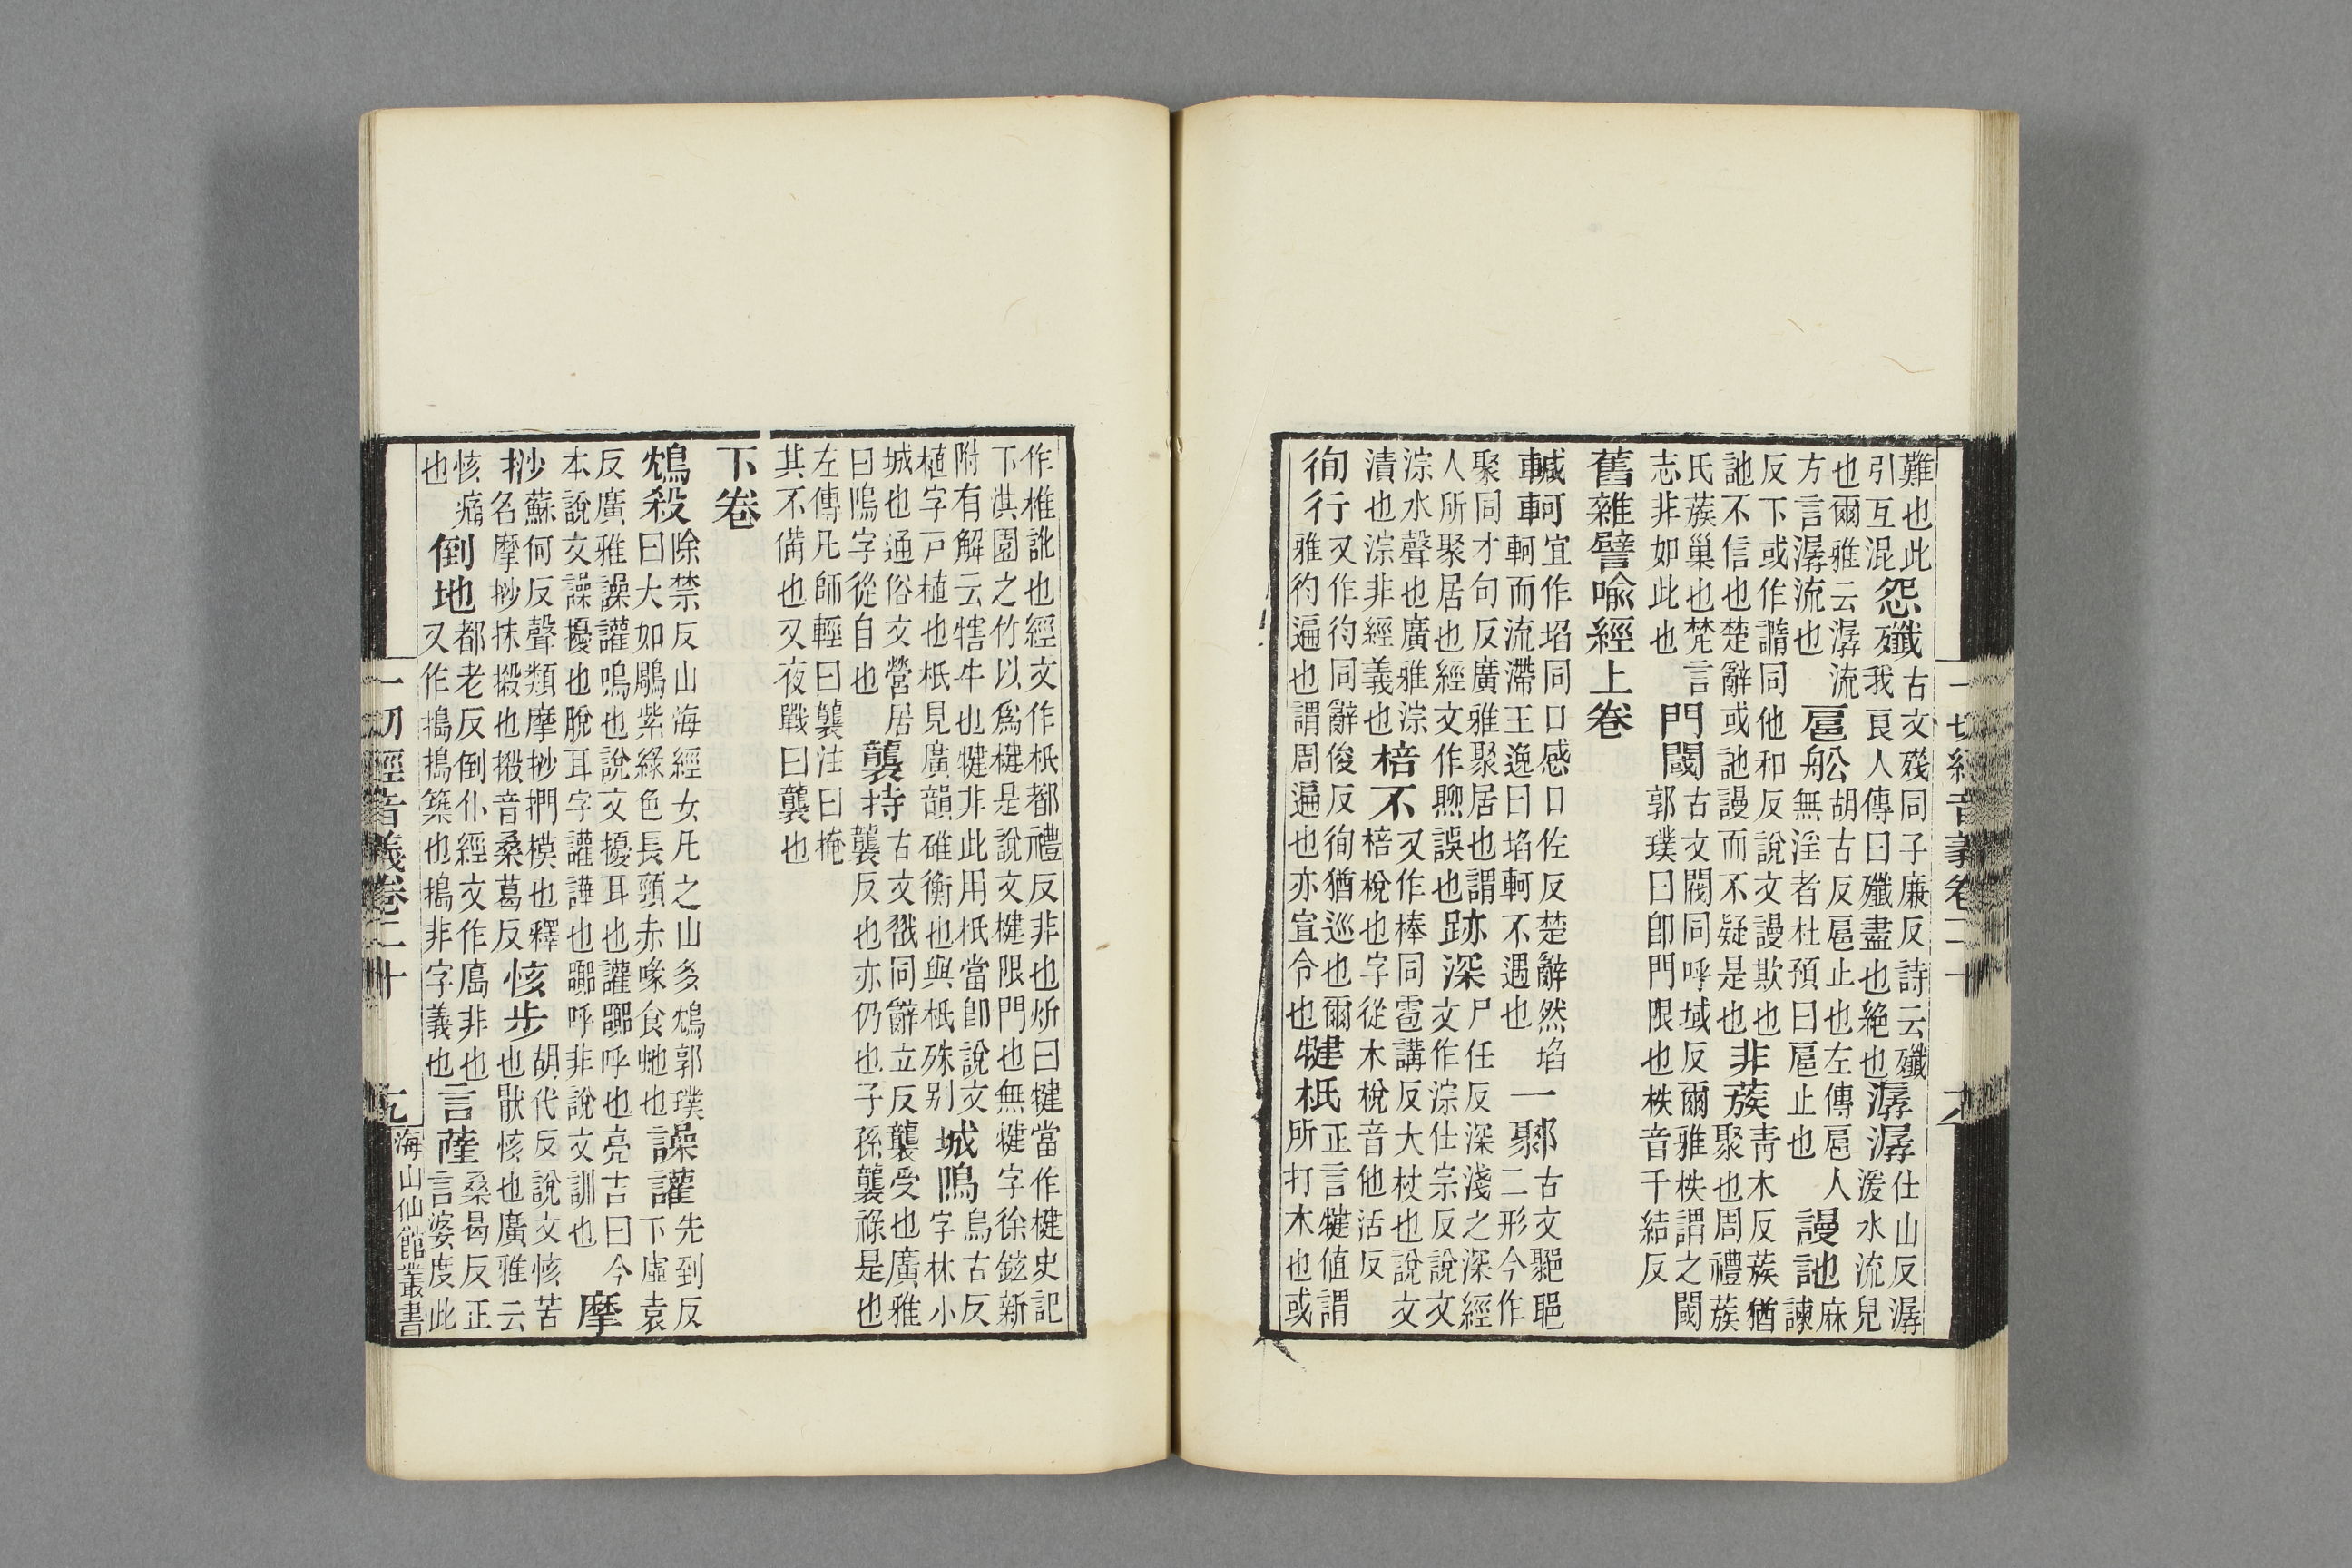 難也此引互混怨殲古文殘同子廉反詩云殲我良人傳曰殲盡也絕也潺潺仕山反潺湲水流皃
也爾雅云潺流方言潺流也扈舩胡古反扈止也左傳扈人無淫者杜預曰扈止也謾訑麻諫
反下或作謆同他和反說文謾欺也訑不信也楚辭或訑謾而不疑是也非蔟青木反蔟猶聚也周禮蔟
氏蔟巢也梵言志非如此也門閾古文同呼域反爾雅柣謂之閾郭璞曰即門限也柣音千結反
舊雜譬喻經上卷
轗軻宜作埳同口感口佐反楚辭然埳軻而流滯王逸曰埳軻不遇也一古文二形今作
聚同才句反廣雅聚居也謂人所聚居也經文作誤也跡深尸任反深淺之深經文作淙仕宗反說文
淙水聲也廣雅淙漬也淙非經義也棓不又作棒同雹講反大杖也說文棓梲也字從木梲音他活反
徇行又作彴同辭俊反徇猶巡也爾雅彴遍也謂周遍也亦宣令也犍柢正言犍值謂所打木也或
作椎訛也經文作柢都禮反非也炘曰犍當作楗史記下淇園之竹以爲楗是說文楗限門也無犍字徐鉉新
附有解云犗牛也犍非此用柢當卽說文植字戸植也柢見廣韻碓衡也與柢殊别城隖烏古反字林小
城也通俗文營居曰隖字從自也襲持古文戩同辭立反襲受也廣雅襲反也亦仍也子孫襲祿是也
左傳凡師輕曰襲注曰掩其不備也又夜戰曰襲也
下卷
鴆殺除禁反山海經女凡之山多鴆鳥郭璞曰大如鵰紫綠色長頸赤喙食虵也譟讙先到反下虛袁
反廣雅譟讙鳴也說文擾耳也讙嘂呼也亮吉曰今本說文譟擾也脫耳字讙譁也嘂呼非說文訓也摩
抄蘇何反聲類摩抄捫摸也釋名摩抄抹摋也摋音桑葛反㤥步胡代反說文㤥苦也猒㤥也廣雅云
㤥痛也倒地都老反倒仆經文作㠀非也又作搗搗築也搗非字義也言薩桑曷反正言娑度此
一切經音義卷二十
海山仙館叢書